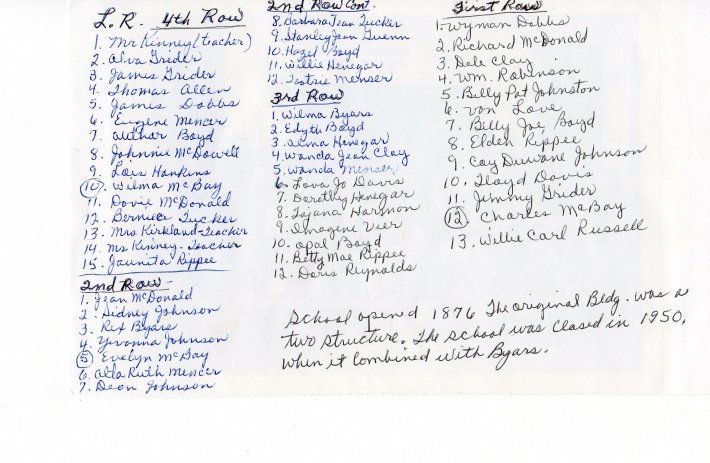 L.R. 4th Row
1. Mr Kinney (teacher)
2. Alva Grider
3. James Grider
4. Thomas Allen
5. James Dobbs
6. Eugene Mencer
7. Authar Boyd
8. Johnnie McDowell
9. Lois Hankins
10. Wilma McBay
11. Dovie McDonald
12. Bernice Tucker
13. Mrs Kirkland-Teacher
14. Ms Kinney-Teacher
15. Jaunita Rippee
2nd Row
1. Jean McDonald
2. Sidney Johnson
3. Rex Byars
4. Yvonna Johnson
5 Evelyn McBay
6. Alda Ruth Mencer
7. Deon Johnson
2nd Row Con't.
8. Barbara Jean Tucker
9. Stanley Jean Guenn
10. Hazel Boyd
11. Willie Henegar
12. Tootsie Menser
3rd Row
1. Wilma Byars
2. Edyth Boyd
3. Alma Henegar
4. Wanda Jean Clay
5. Wanda Menser
6. Lova Jo Davis
7. Dorothy Henegar
8. Tajana Harmon
9. Imogene Vier
10. Opal Boyd
11. Betty Mae Rippee
12. Doris Reynolds
First Row
1. Wyman Dobbs
2. Richard McDonald
3. Dale Clay
4. Wm. Robinson
5. Billy Pat Johnston
6. Von Love
7. Billy Joe Boyd
8. Elden Rippee
9. Coy Duwane Johnson
10. Lloyd Davis
11. Jimmy Grider
12 Charles McBay
13. Willie Carl Russell
School opened 1876 The original Bldg. was a
two structure. The school was closed in 1950,
when it combined with Byars.